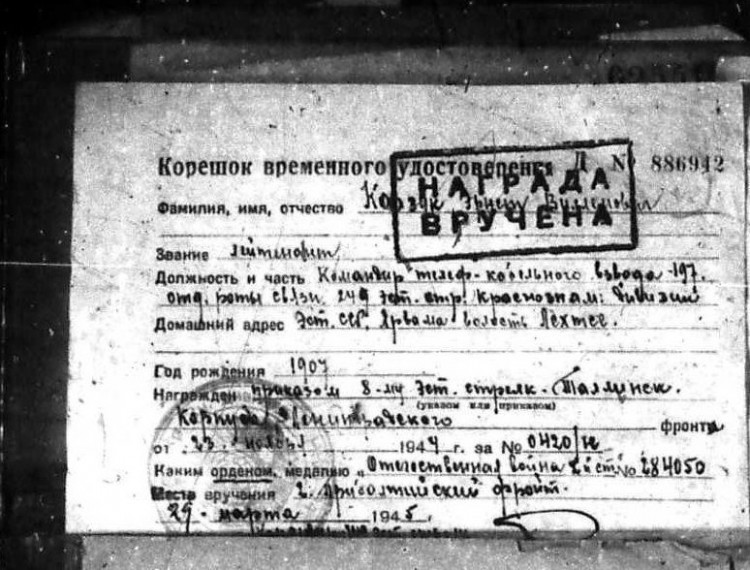 Корешок временного удостоверения Д № 886942
НАГРАДА
ВРУЧЕНА
Фамилия, имя, отчество Эрнест
Звание лейтенант
Должность и часть Командир телеф-кабельного взвода 197.
отд. роты связи 249 Эст. стр. Краснознам. дивизии
Домашний адрес Эст. ССР, Ярвама волость Лехтсе.
Год рождения 1907
Награжден приказом 8-му Эст. стрелк. Таллинск.
(указом или приказом)
Корпуса Ленинградского фронта
от 23 ноября 1944 г. за № 0420/н
Каким орденом, медалью „Отечественная война 2 ст. № 284050
Место вручения 2. Прибалтийский фронт.
29 - марта 1945 г.